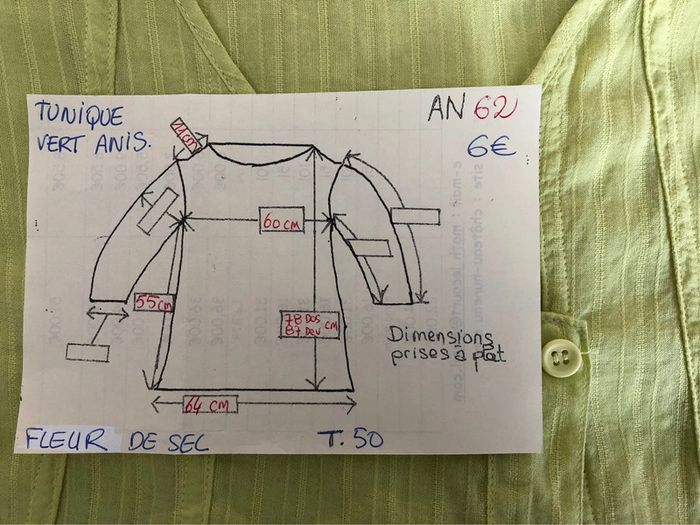 TUNIQUE
VERT ANIS.
AN 62
6€
11cm
60 CM
55cm
78 DOS
87 DEV CM
64 CM
Dimensions
prises à plat
FLEUR DE SEC
T. 50